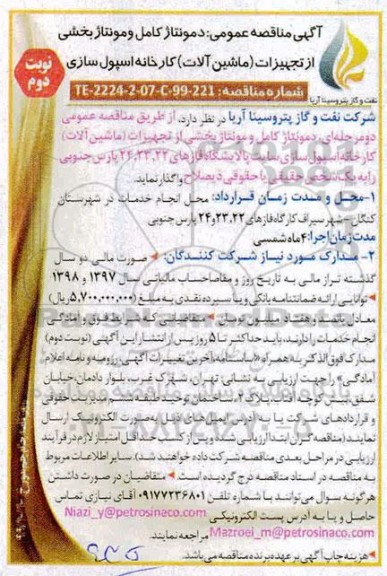 آگهی مناقصه عمومی: دمونتاژ کامل ومونتاژ بخشی
از تجهیزات (ماشین آلات) کارخانه اسپول سازی
نوبت
دوم
شماره مناقصه: TE-2224-2-07-C-99-221
نفت و گاز پتروسینا آریا
شرکت نفت و گاز پتروسینا آریا در نظر دارد، از طریق مناقصه عمومی
دومرحله‌ای، دمونتاژ کامل و مونتاژ بخشی از تجهیزات (ماشین آلات)
کارخانه اسپول سازی سایت پالایشگاه فازهای ۲۲،۲۳،۲۴ پارس جنوبی
را به یک شخص حقیقی یا حقوقی ذیصلاح واگذار نماید.
۱-محل و مدت زمان قرارداد: محل انجام خدمات در شهرستان
کنگان-شهر سیراف کارگاه فازهای ۲۲،۲۳و۲۴ پارس جنوبی
مدت زمان اجرا: ۴ماه شمسی
۲- مدارک مورد نیاز شرکت کنندگان: صورت مالی دو سال
گذشته تراز مالی به تاریخ روز و مفاصاحساب مالیاتی سال ۱۳۹۷ و ۱۳۹۸
توانایی ارائه ضمانتنامه بانکی و یا سپرده نقدی به مبلغ (۵,۷۰۰,۰۰۰,۰۰۰ ریال)
معادل پانصد و هفتاد میلیون تومان متقاضیانی که شرایط فوق و آمادگی
انجام خدمات را دارند، باید حداکثر تا ۵ روز پس از انتشار این آگهی (نوبت دوم)
مدارک فوق الذکر به همراه «اساسنامه، آخرین تغییرات آگهی، رزومه و نامه اعلام
آمادگی» را جهت ارزیابی به نشانی: تهران، شهرک غرب، بلوار دادمان، خیابان
و قراردادهای شرکت یا به آدرس ایمیل‌های ذیل به صورت الکترونیک ارسال
نمایند (مناقصه گران ابتدا ارزیابی شده و پس از کسب حداقل امتیاز لازم در فرآیند
ارزیابی در مراحل بعدی مناقصه شرکت داده خواهند شد). سایر اطلاعات مربوط
به مناقصه در اسناد مناقصه درج گردیده است. متقاضیان در صورت داشتن
هرگونه سوال می‌توانند با شماره تلفن ۰۹۱۷۷۲۳۶۸۰۱ آقای نیازی تماس
حاصل و یا به آدرس پست الکترونیکی Niazi_y@petrosinaco.com
Mazroei_m@petrosinaco.com مراجعه نمایند.
هزینه چاپ آگهی بر عهده برنده مناقصه می‌باشد.